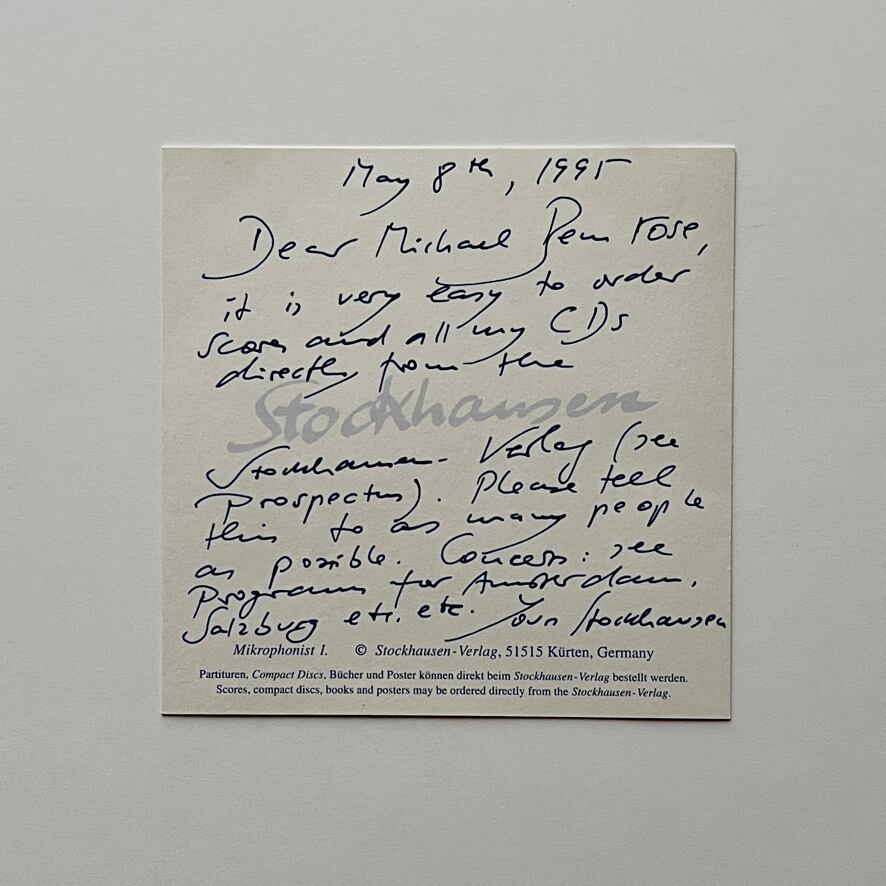 May 8th, 1995
Dear Michael Penrose,
it is very easy to order
scores and all my CDs
directly from the
Stockhausen
Stockhausen-Verlag (see
Prospectus). Please tell
this to as many people
as possible. Concerts: see
Programm for Amsterdam,
Salzburg etc. etc. Your Stockhausen
Mikrophonist I. © Stockhausen-Verlag, 51515 Kürten, Germany
Partituren, Compact Discs, Bücher und Poster können direkt beim Stockhausen-Verlag bestellt werden.
Scores, compact discs, books and posters may be ordered directly from the Stockhausen-Verlag.